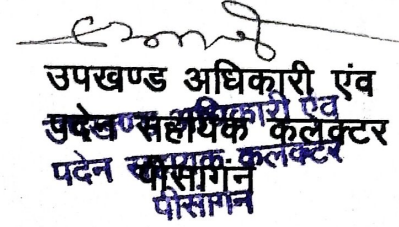 उपखण्ड अधिकारी एंव
पदेन सहायक कलेक्टर
पीसांगन
उपखण्ड अधिकारी एंव
पदेन सहायक कलेक्टर
पीसांगन